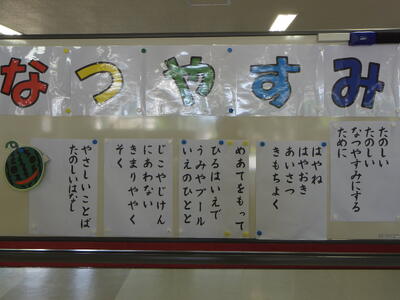 なつやすみ
たのしい
たのしい
なつやすみにする
ために
はやね
はやおき
あいさつ
きもちよく
めあてをもって
ひるはいえで
うみやプール
いえのひとと
じこやじけん
にあわない
きまりややく
そく
やさしいことば
たのしいはなし